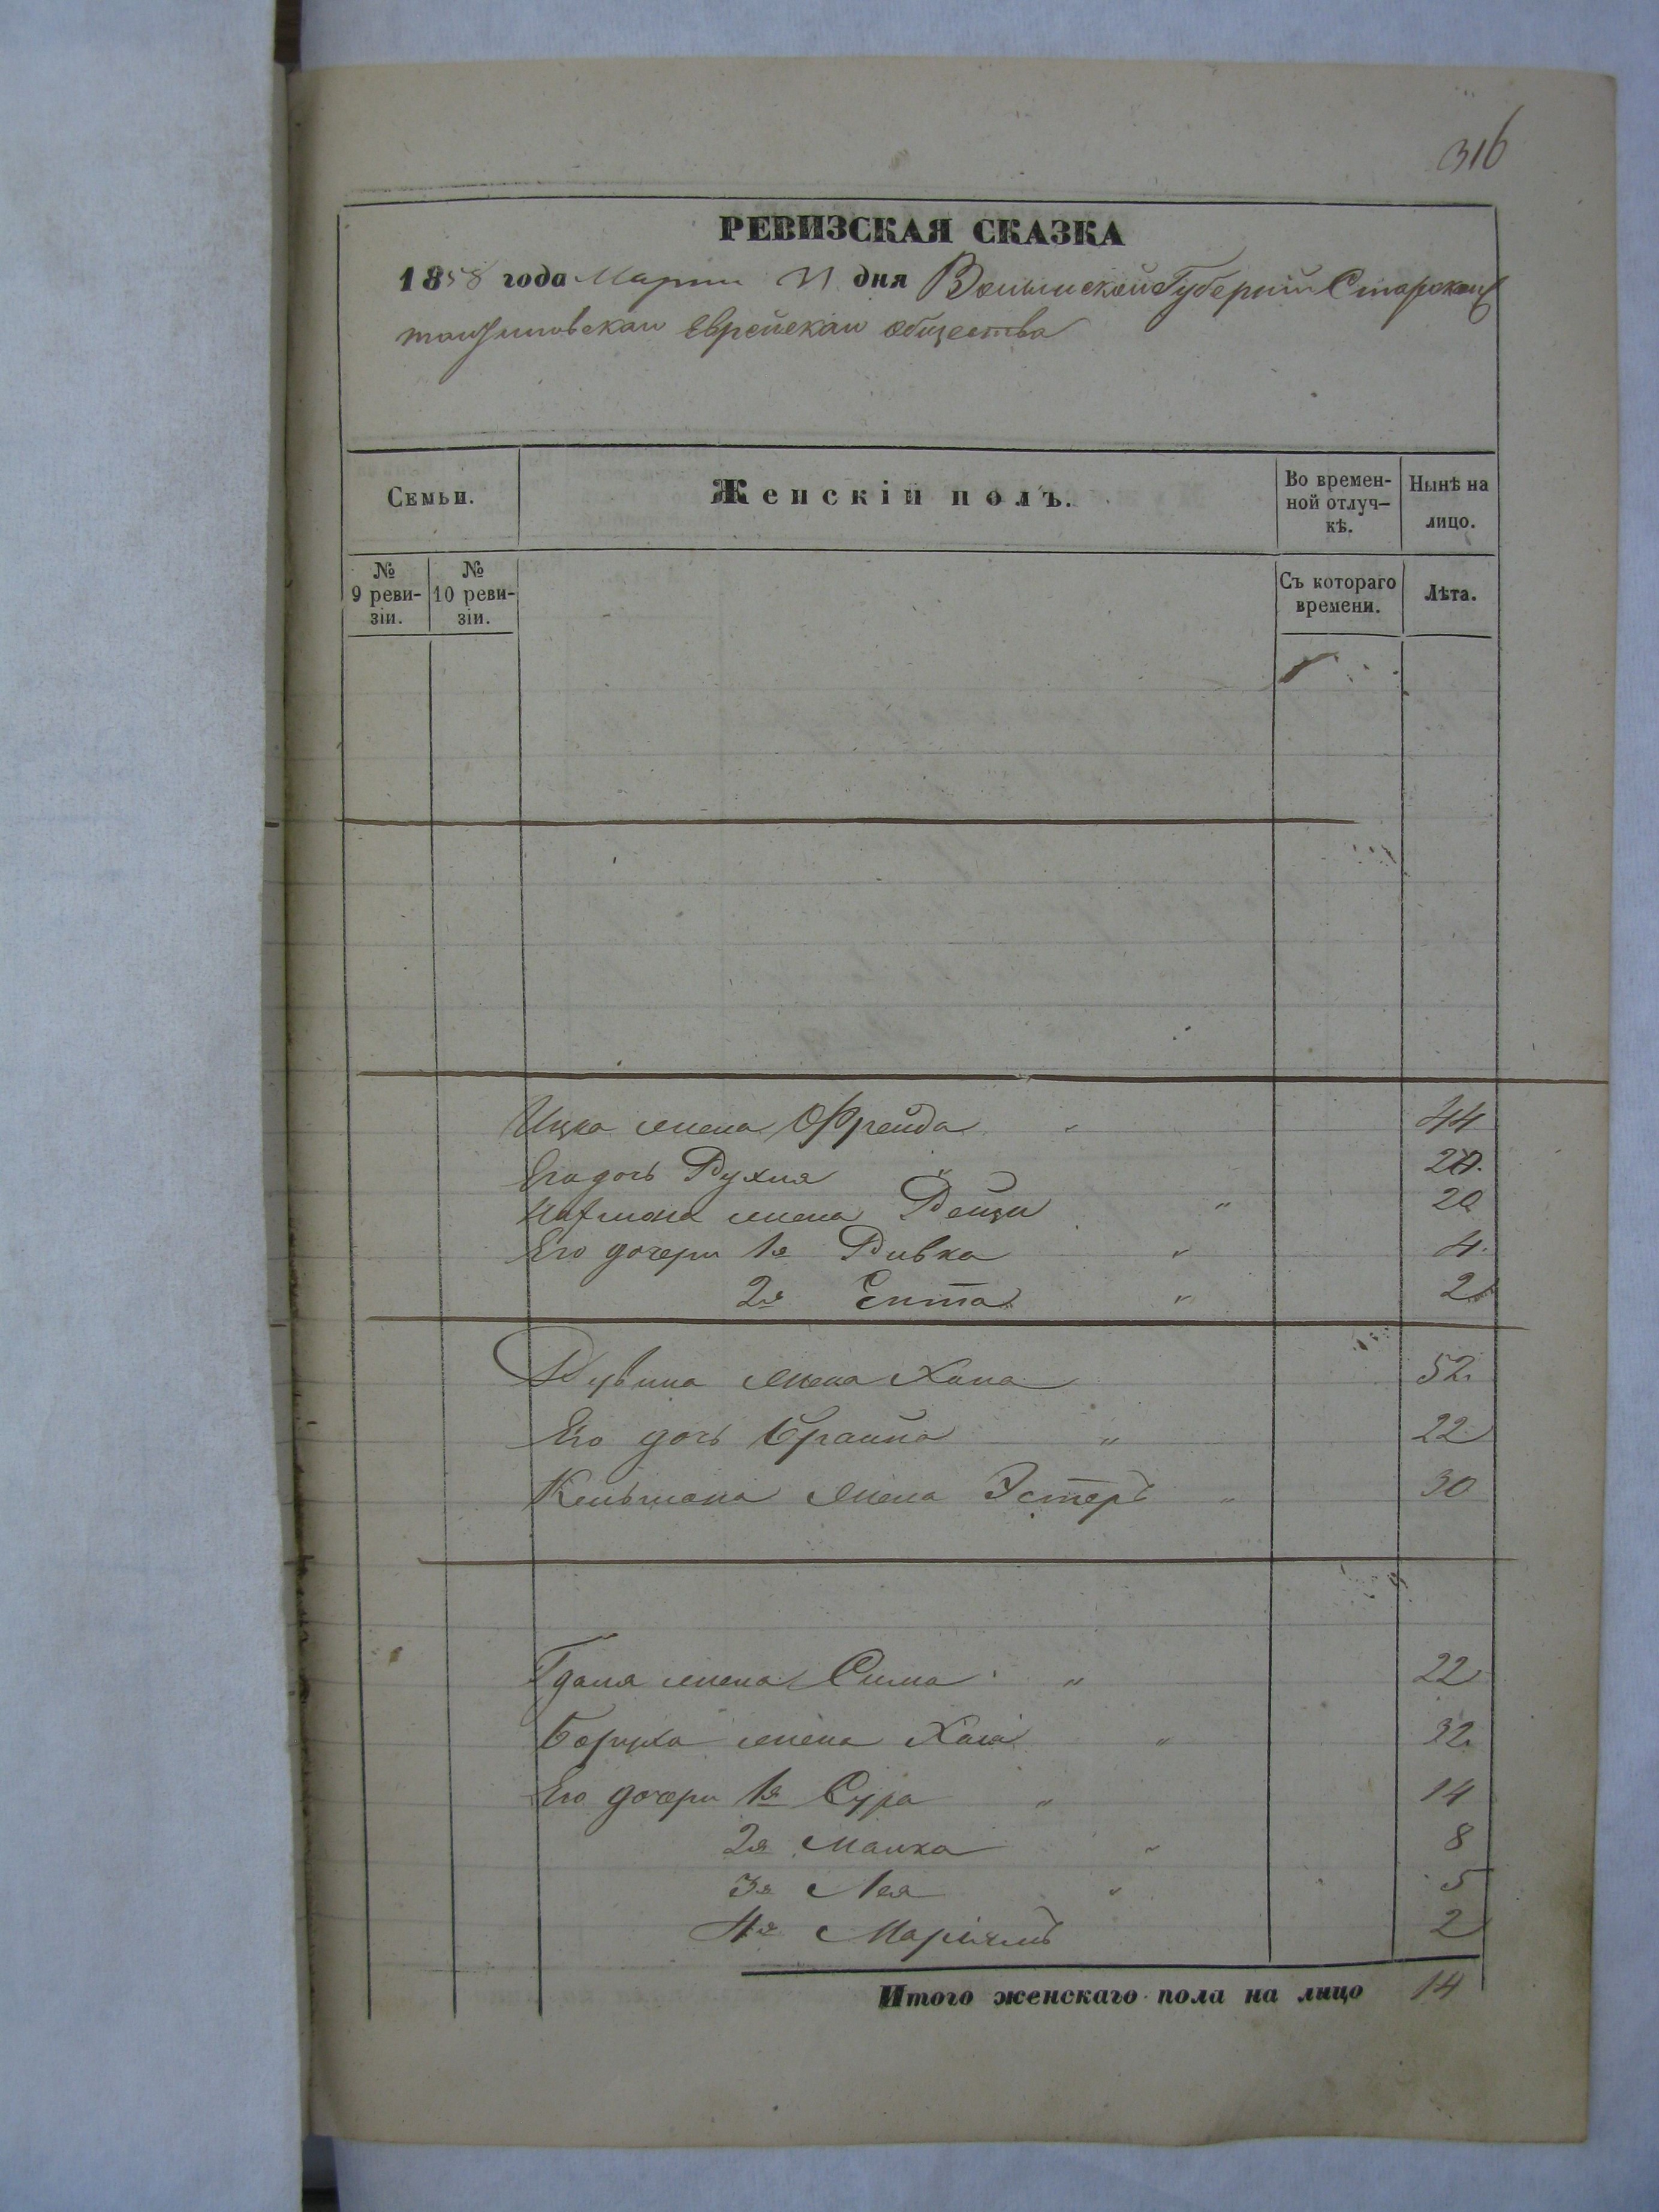 316
РЕВИЗСКАЯ СКАЗКА
1858 года Марта 31 дня Волынской Губерніи Старокон
тантиновскаго Еврейскаго общества
Семьи.
Женскій полъ.
Во времен-
ной отлуч-
кѣ.
Нынѣ на
лицо.
№
9 реви-
зіи.
№
10 реви-
зіи.
Съ котораго
времени.
Лѣта.
Ицка жена Фрейда 44
Его дочь Рухля " 20.
жена Рейзи " 20
Его дочери 1я Ривка " 4.
2я Ента " 2
Рувина жена Хана 52.
Его дочь Брайна " 22
Кельмана жена Эстеръ " 30
Гдаля жена Сима " 22
Боруха жена Хая " 32.
Его дочери 1я Сура " 14
2я Малка " 8
3я Лея " 5
4я Маріямъ 2
Итого женскаго пола на лицо 14